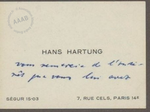 HANS HARTUNG
vous remercie de l'intérêt que vous
SÉGUR 15-03
7, RUE CELS, PARIS 14e